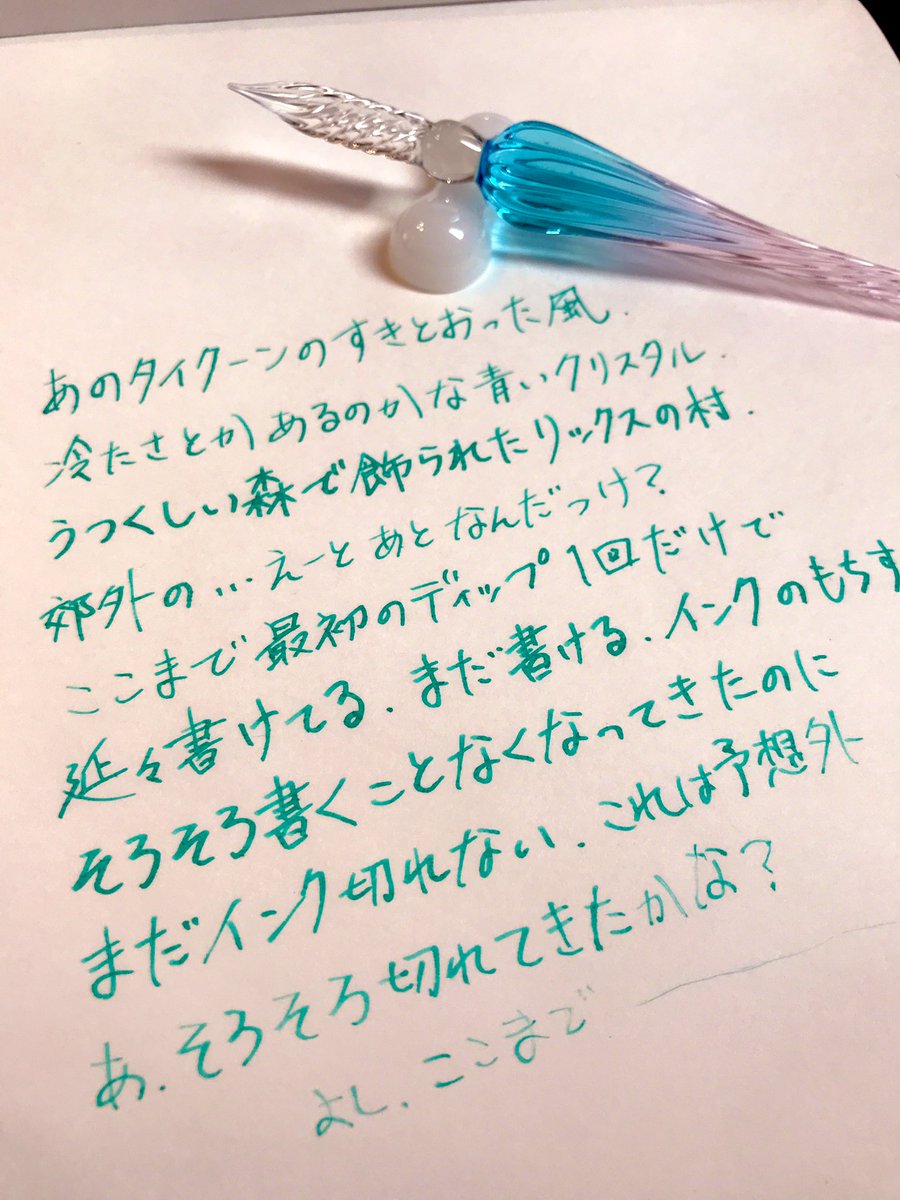 あのタイクーンのすきとおった風.
冷たさとかあるのかな青いクリスタル.
うつくしい森で飾られたリックスの村.
郊外の…えーとあとなんだっけ?
ここまで最初のディップ1回だけで
延々書けてる.まだ書ける.インクのもちす
そろそろ書くことなくなってきたのに
まだインク切れない.これは予想外
あ.そろそろ切れてきたかな?
よし.ここまで